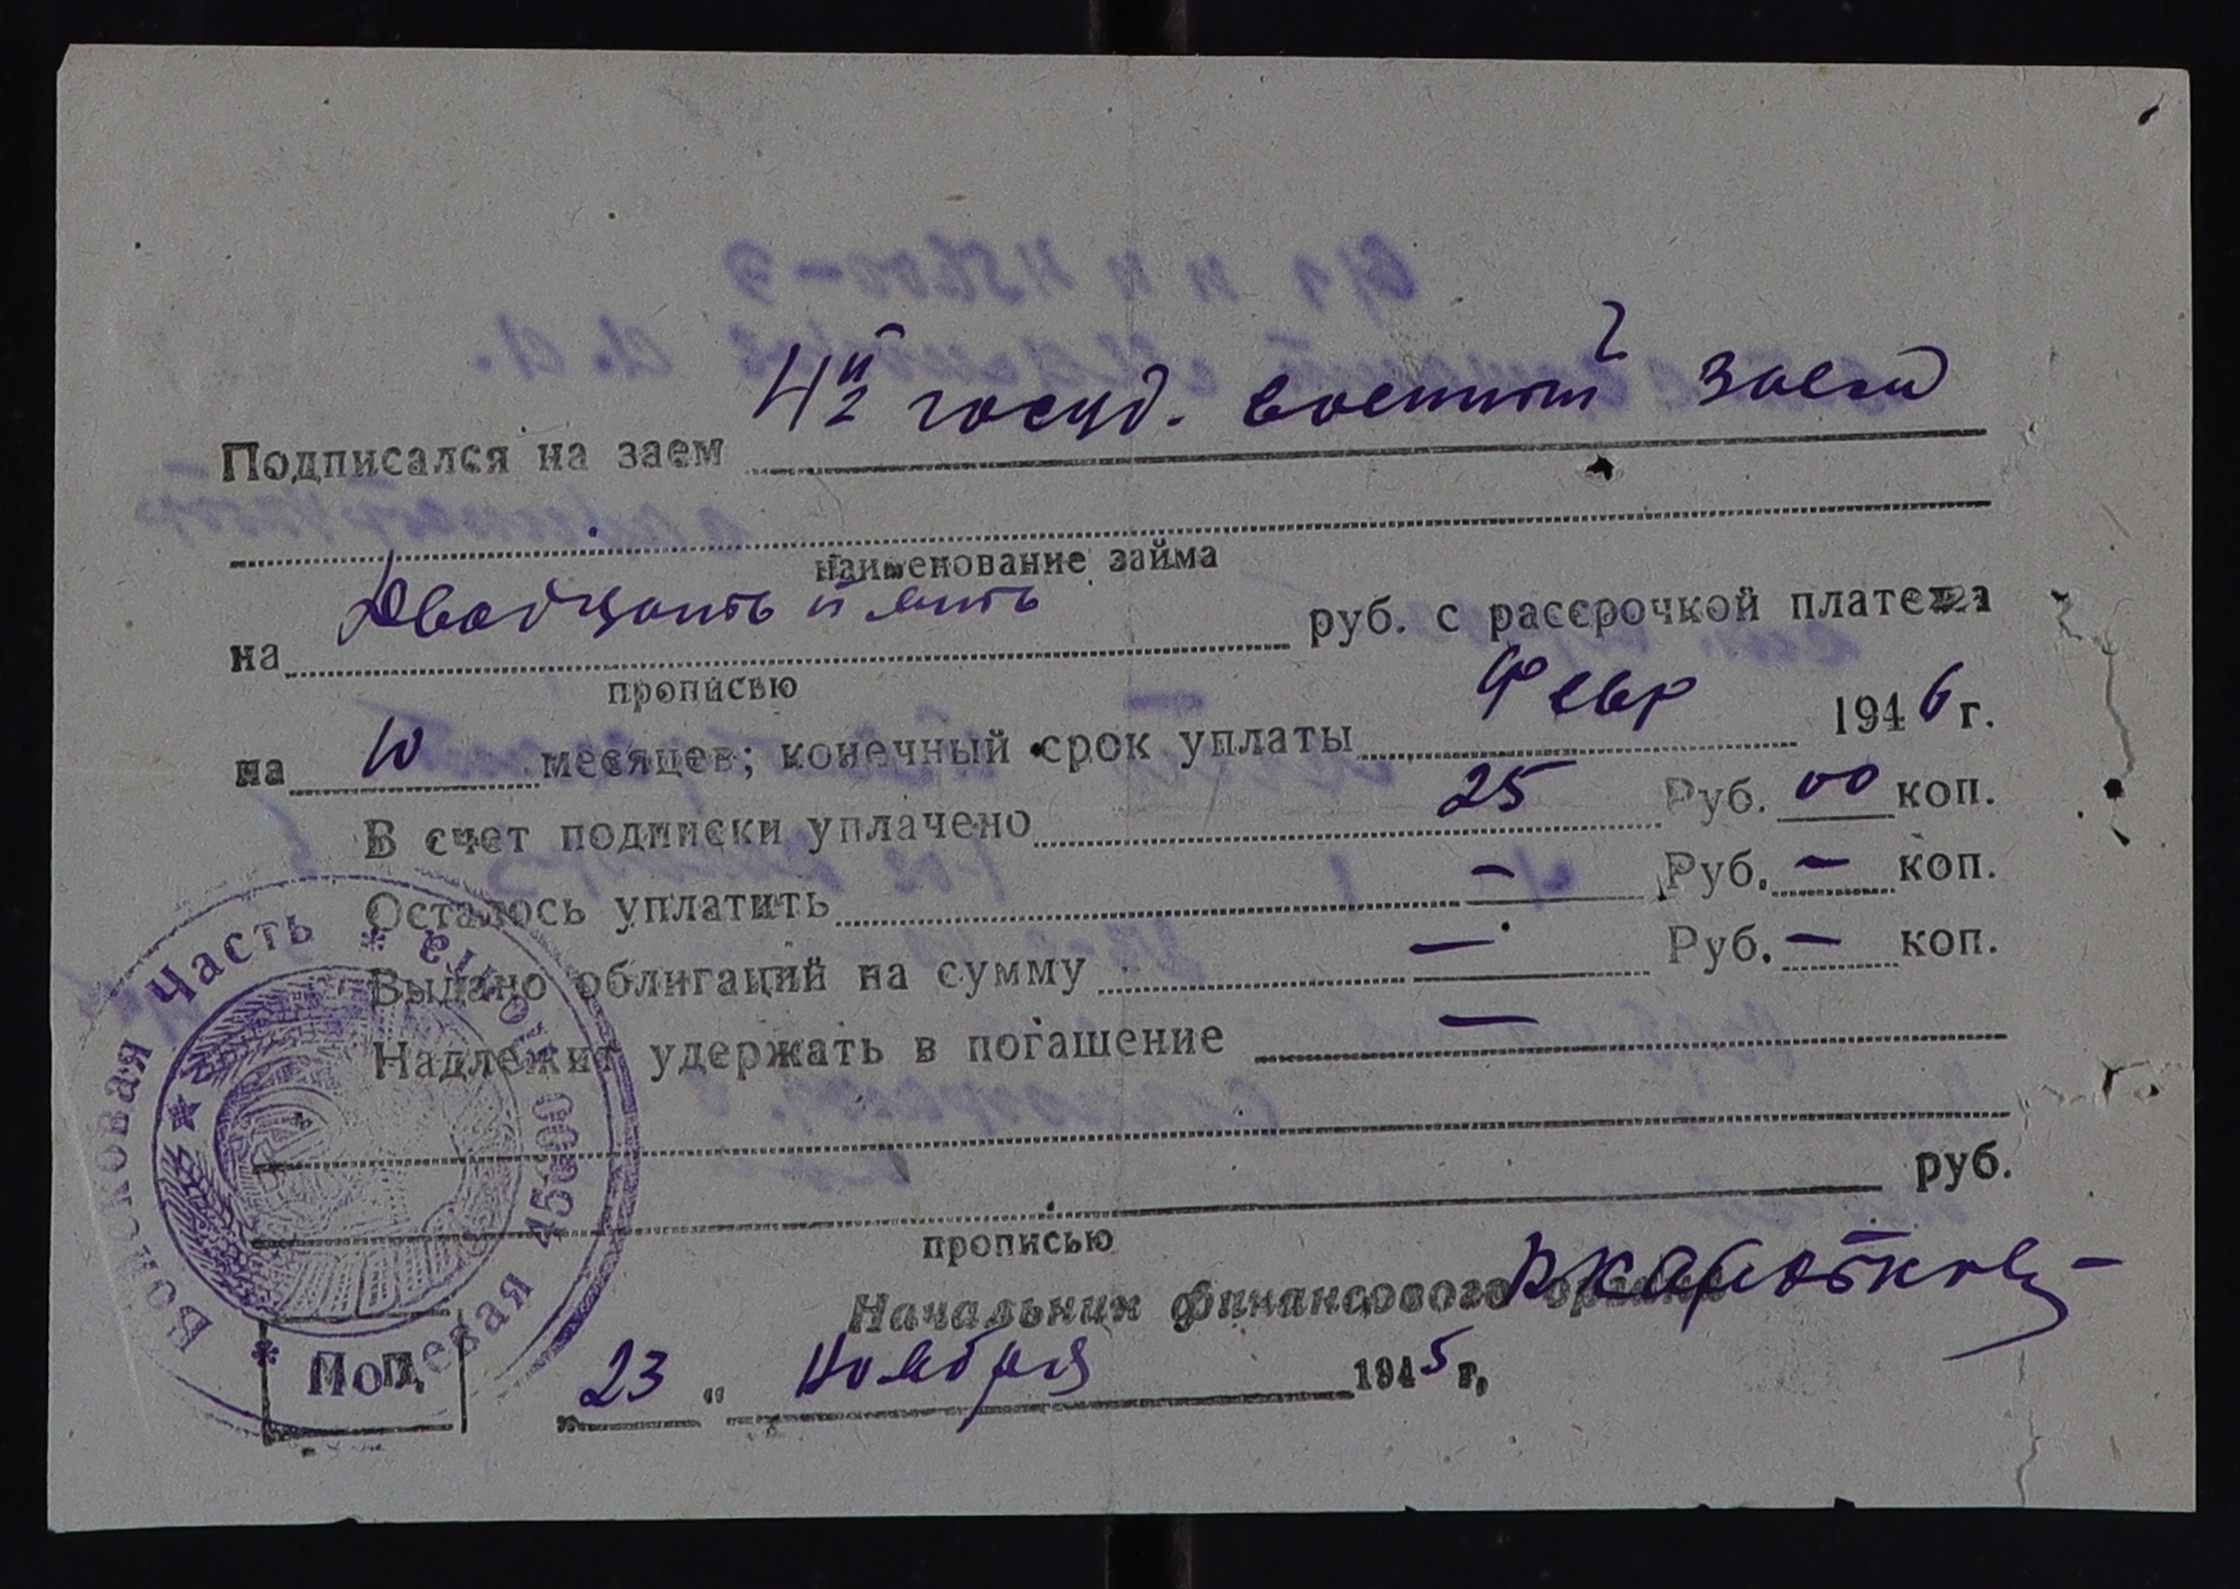 4й госуд. военный заем
Подписался на заем
наименование займа
на Двадцать пять руб. с рассрочкой платежа
прописью
на 10 месяцев; конечный срок уплаты Февр 1946 г.
В счет подписки уплачено 25 Руб. 00 коп.
Осталось уплатить — Руб. — коп.
Выдано облигаций на сумму — Руб. — коп.
Надлежит удержать в погашение —
руб.
прописью
Начальник финансового органа
23 " Ноября 1945 г.
М. П.
Войсковая Часть * Полевая почта 45600 *